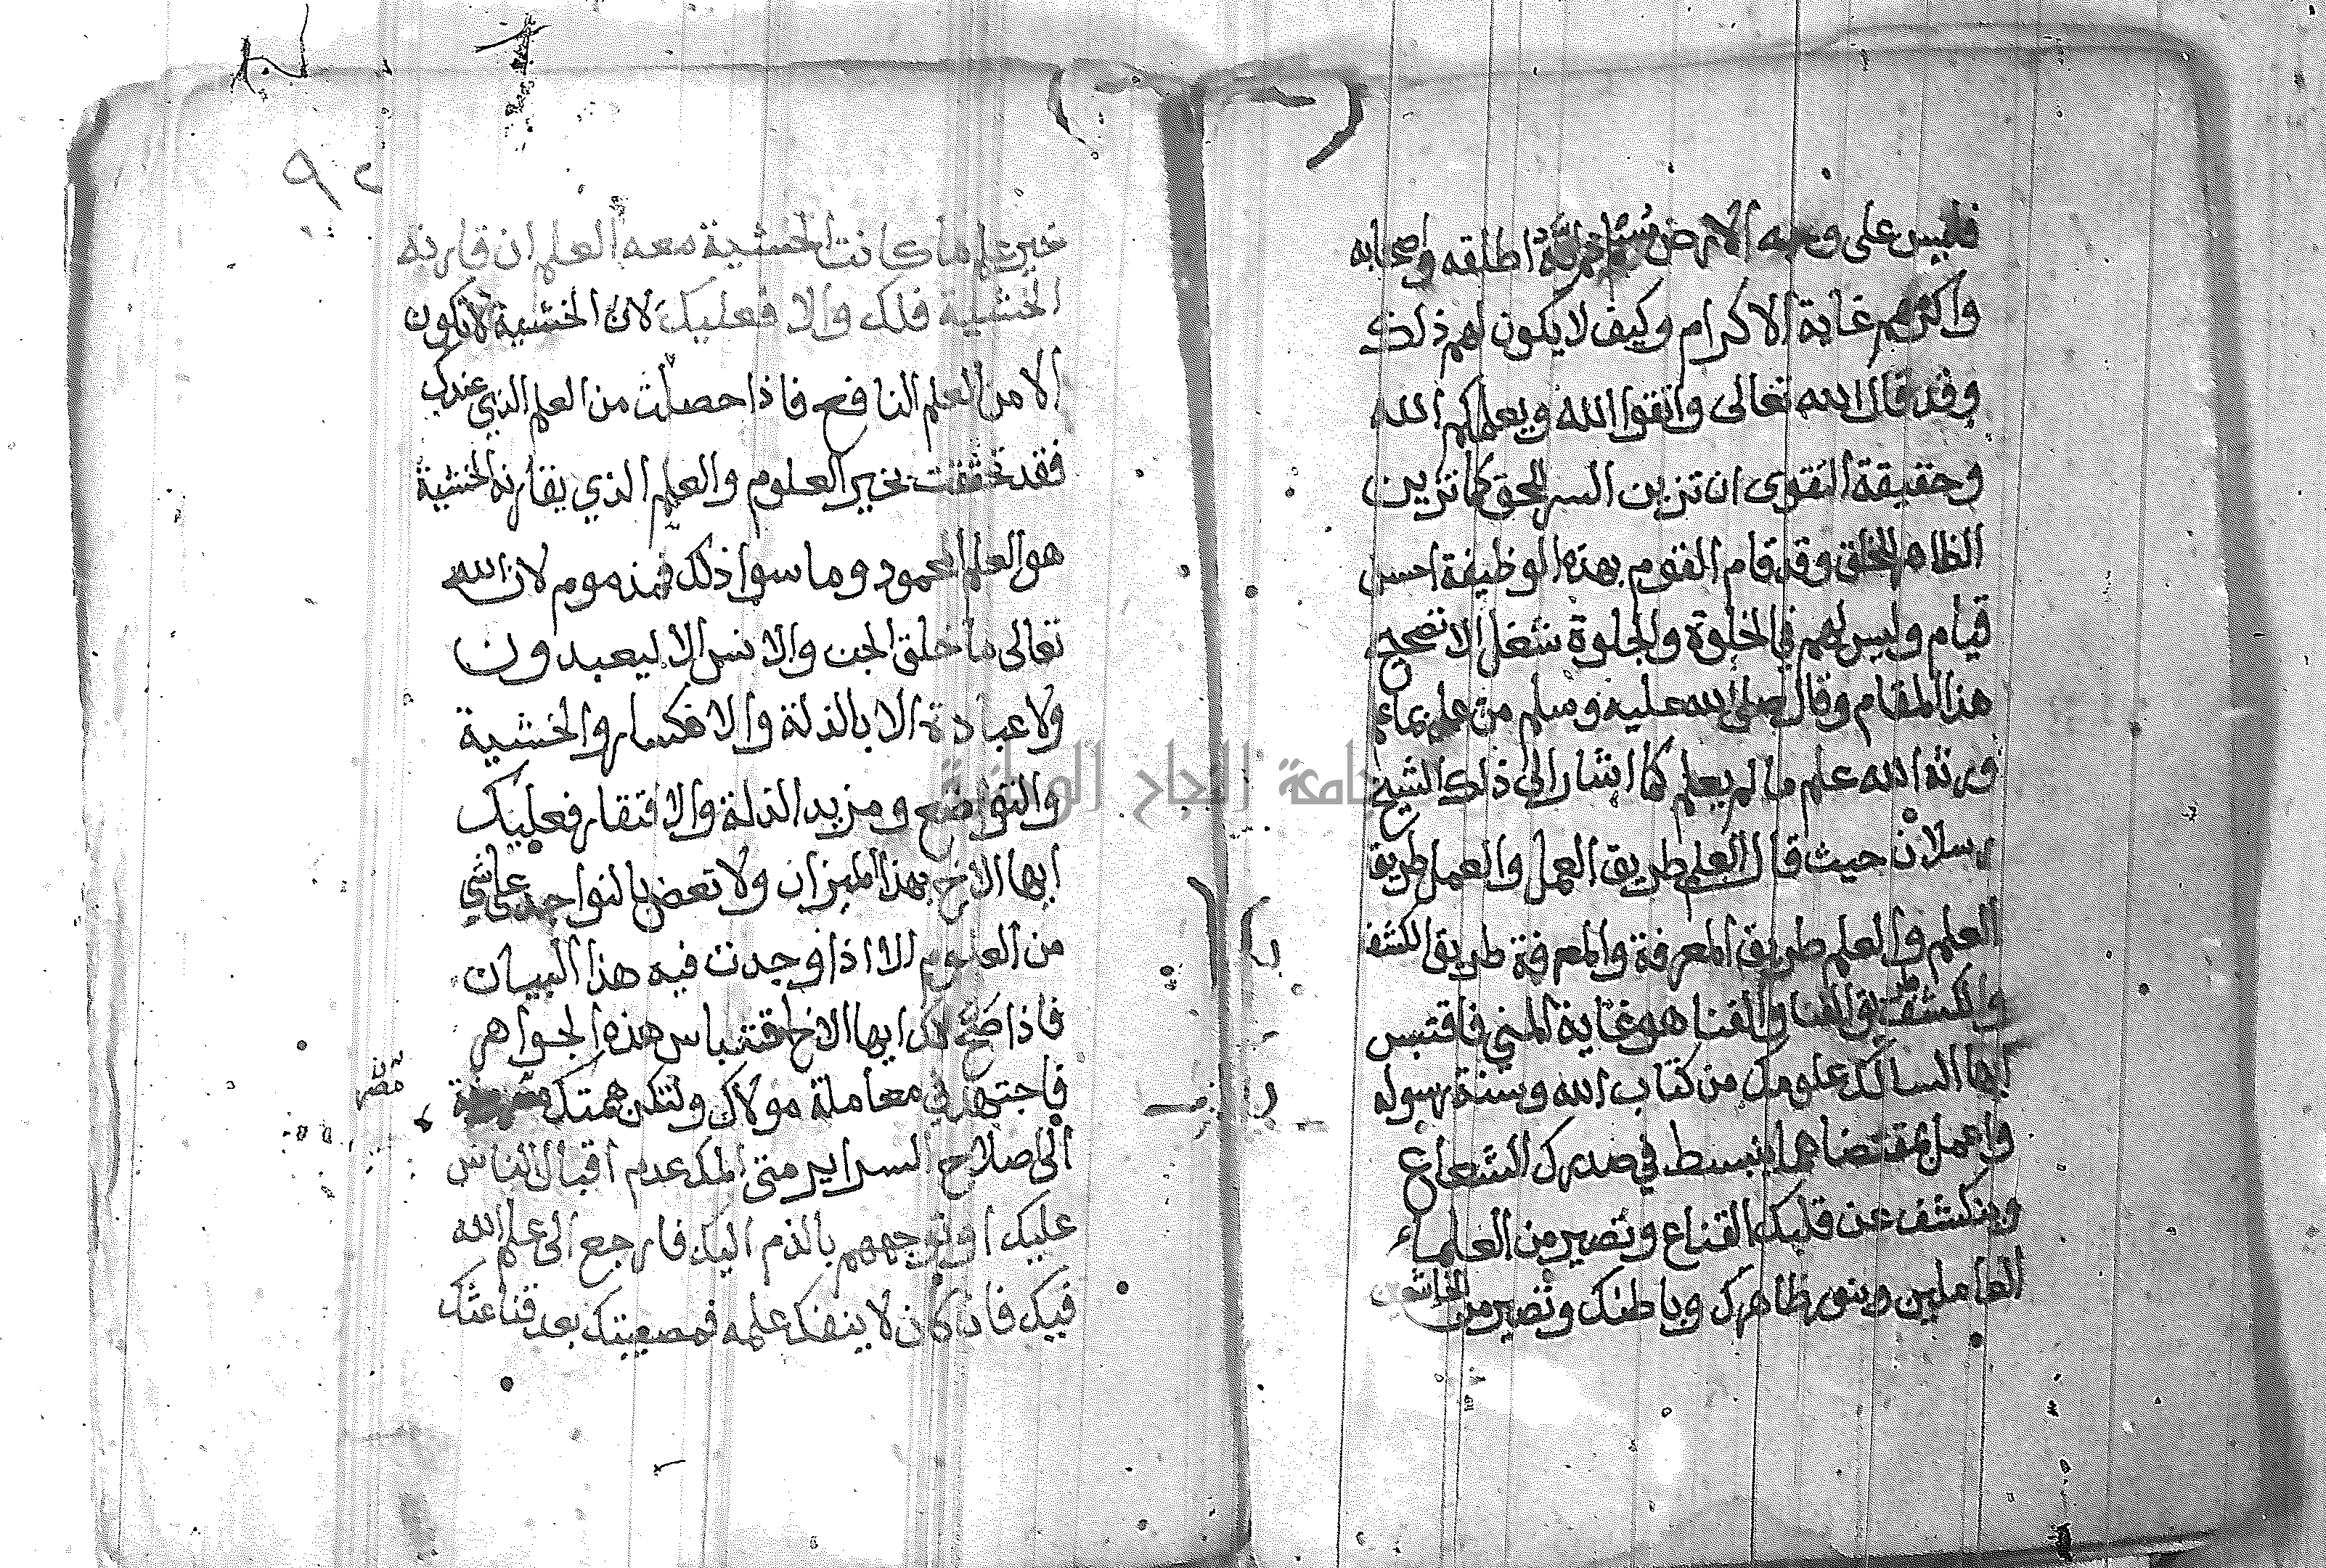 فليس على وجه الارض اطلقه واصحابه
واكرمهم غاية الاكرام وكيف لا يكون لهم ذلك
وقد قال الله تعالى واتقوا الله ويعلمكم الله
وحقيقة التقوى ان تزين السر للحق كما تزين
الظاهر للخلق وقد قام القوم بهذه الوظيفة احسن
قيام وليس لهم في الخلوة والجلوة شغل الا تصحيح
هذا المقام وقال صلى الله عليه وسلم من عمل بما علم
ورثه الله علم ما لم يعلم كما اشار الى ذلك الشيخ
رسلان حيث قال العلم طريق العمل والعمل طريق
العلم والعلم طريق المعرفة والمعرفة طريق الكشف
والكشف طريق الفنا والفنا هو غاية المني فاقتبس
ايها السالك علومك من كتاب الله وسنة رسوله
واعمل بمقتضاهما ينبسط في صدرك الشعاع
وينكشف عن قلبك القناع وتصير من العلماء
العاملين وينور ظاهرك وباطنك وتصير من الخاشعين
٩٢
خير علم ما كانت الخشية معه العلم ان قارنه
الخشية فلك والا فعليك لان الخشية لا تكون
الا من العلم النافع فاذا حصلت من العلم الذي عندك
فقد تحققت بخير العلوم والعلم الذي يقارنه الخشية
هو العلم المحمود وما سوا ذلك فمذموم لان الله
تعالى ما خلق الجن والانس الا ليعبدون
ولا عبادة الا بالذلة والانكسار والخشية
والتواضع ومزيد الذلة والافتقار فعليك
ايها الاخ بهذا الميزان ولا تعض بالنواجد على شي
من العلوم الا اذا وجدت فيه هذا البيان
فاذا صح لك ايها الاخ اقتباس هذه الجواهر
فاجتهد في معاملة مولاك ولتكن همتك
الى اصلاح السراير متى المك عدم اقبال الناس
عليك او توجههم بالذم اليك فارجع الى علم الله
فيك فان كان لا ينفك علمه فمصيبتك بعد قناعتك
جامعة النجاح الوطنية